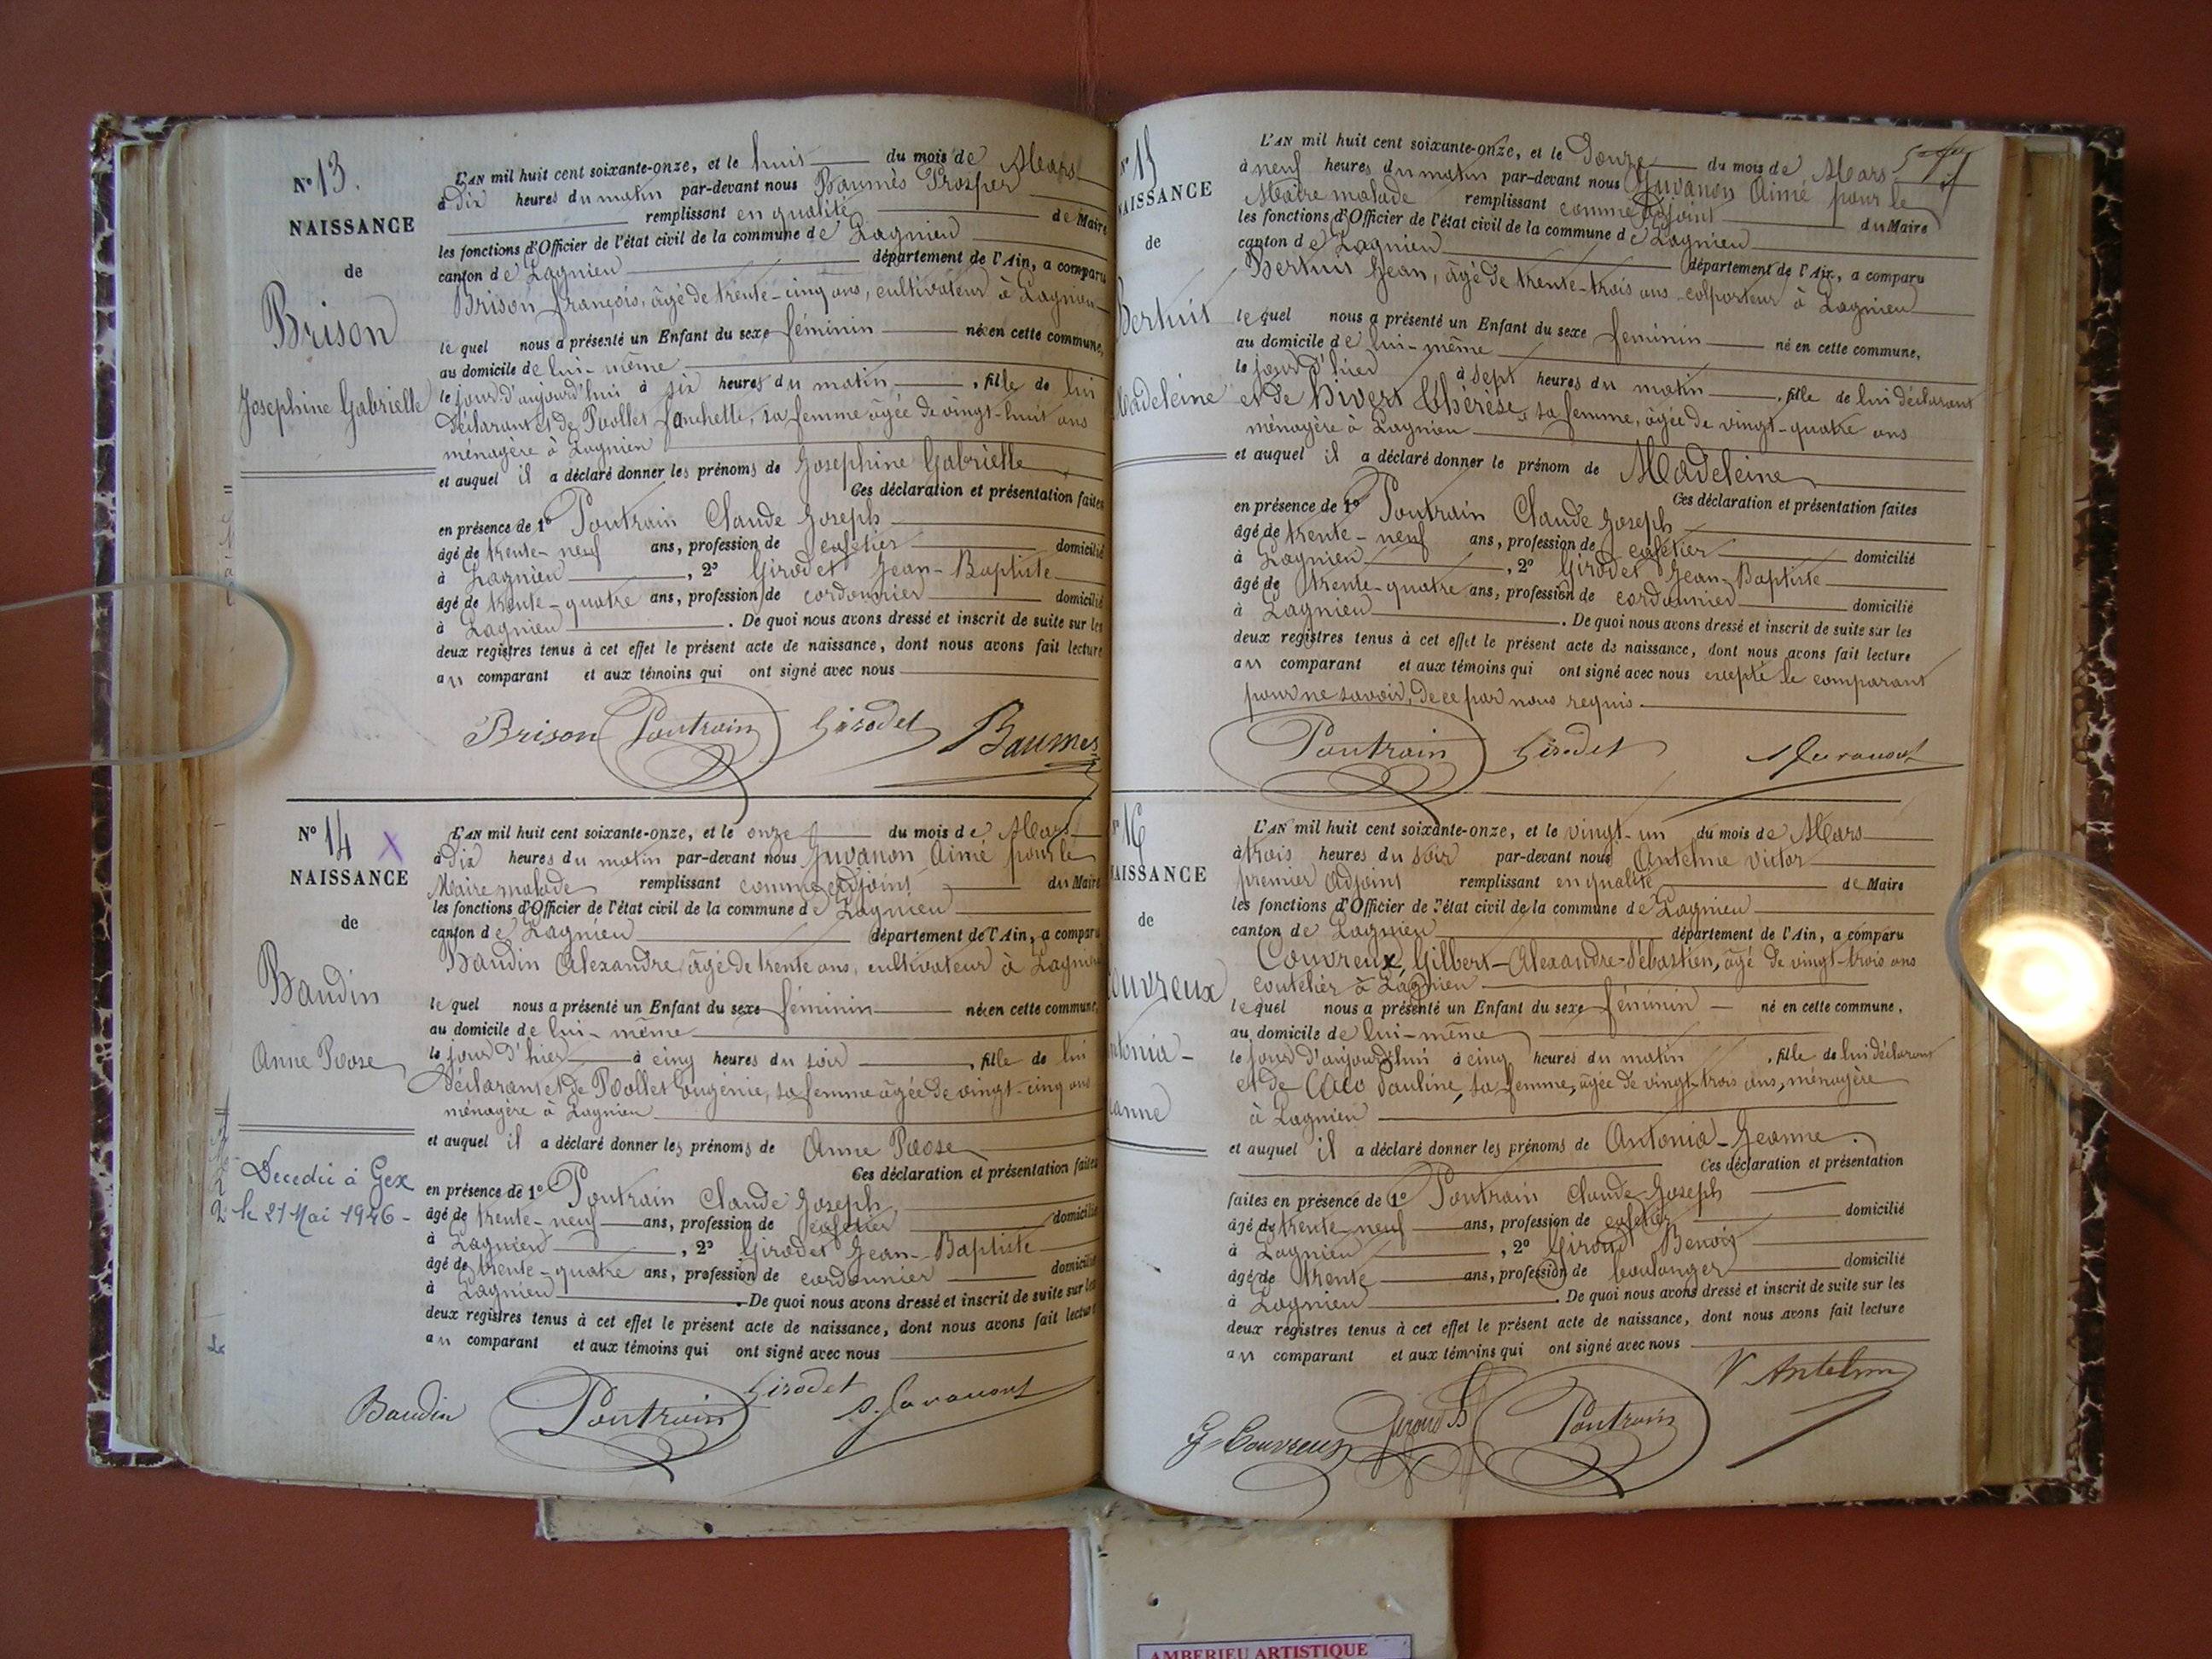 N° 13.
NAISSANCE
de
Brison
Josephine Gabrielle
L'AN mil huit cent soixante-onze, et le huit du mois de Mars
à dix heures du matin par-devant nous Baumès Prosper
remplissant en qualité de Maire
les fonctions d'Officier de l'état civil de la commune de Lagnieu
canton de Lagnieu département de l'Ain, a comparu
Brison françois, âgé de trente-cinq ans, cultivateur à Lagnieu
lequel nous a présenté un Enfant du sexe féminin né en cette commune,
au domicile de lui-même
le jour d'aujourd'hui à six heures du matin, fille de lui
déclarant et de Rollet fanchette, sa femme âgée de vingt-huit ans
ménagère à Lagnieu
et auquel il a déclaré donner les prénoms de Josephine Gabrielle
Ces déclaration et présentation faites
en présence de 1° Poutrain Claude Joseph
âgé de trente-neuf ans, profession de cafetier domicilié
à Lagnieu, 2° Girodet Jean-Baptiste
âgé de trente-quatre ans, profession de cordonnier domicilié
à Lagnieu. De quoi nous avons dressé et inscrit de suite sur les
deux registres tenus à cet effet le présent acte de naissance, dont nous avons fait lecture
au comparant et aux témoins qui ont signé avec nous
Brison Poutrain Girodet Baumes
N° 14 X
NAISSANCE
de
Baudin
Anne Rose
Decedée à Gex
le 21 Mai 1946-
L'AN mil huit cent soixante-onze, et le onze du mois de Mars
à dix heures du matin par-devant nous Juvanon Aimé pour le
Maire malade remplissant comme adjoint du Maire
les fonctions d'Officier de l'état civil de la commune de Lagnieu
canton de Lagnieu département de l'Ain, a comparu
Baudin Alexandre, âgé de trente ans, cultivateur à Lagnieu
lequel nous a présenté un Enfant du sexe féminin né en cette commune,
au domicile de lui-même
le jour d'hier à cinq heures du soir, fille de lui
déclarant et de Rollet Eugénie, sa femme âgée de vingt-cinq ans
ménagère à Lagnieu
et auquel il a déclaré donner les prénoms de Anne Rose
Ces déclaration et présentation faites
en présence de 1° Poutrain Claude Joseph,
âgé de trente-neuf ans, profession de cafetier domicilié
à Lagnieu, 2° Girodet Jean-Baptiste
âgé de trente-quatre ans, profession de cordonnier domicilié
à Lagnieu. De quoi nous avons dressé et inscrit de suite sur les
deux registres tenus à cet effet le présent acte de naissance, dont nous avons fait lecture
au comparant et aux témoins qui ont signé avec nous
Baudin Poutrain Girodet A. Juvanon
N° 15
NAISSANCE
de
Bertuit
Madeleine
L'AN mil huit cent soixante-onze, et le Douze du mois de Mars
à neuf heures du matin par-devant nous Juvanon Aimé pour le
Maire malade remplissant comme adjoint du Maire
les fonctions d'Officier de l'état civil de la commune de Lagnieu
canton de Lagnieu département de l'Ain, a comparu
Bertuit Jean, âgé de trente-trois ans colporteur à Lagnieu
lequel nous a présenté un Enfant du sexe féminin né en cette commune,
au domicile de lui-même
le jour d'hier à sept heures du matin, fille de lui déclarant
et de Hivert Thérèse, sa femme, âgée de vingt-quatre ans
ménagère à Lagnieu
et auquel il a déclaré donner le prénom de Madeleine
Ces déclaration et présentation faites
en présence de 1° Poutrain Claude Joseph
âgé de trente-neuf ans, profession de cafetier domicilié
à Lagnieu, 2° Girodet Jean-Baptiste
âgé de trente-quatre ans, profession de cordonnier domicilié
à Lagnieu. De quoi nous avons dressé et inscrit de suite sur les
deux registres tenus à cet effet le présent acte de naissance, dont nous avons fait lecture
au comparant et aux témoins qui ont signé avec nous excepté le comparant
pour ne savoir, de ce par nous requis.
Poutrain Girodet A Juvanon
N° 16
NAISSANCE
de
Couvreux
Antonia-
Jeanne
L'AN mil huit cent soixante-onze, et le vingt-un du mois de Mars
à trois heures du soir par-devant nous Antelme Victor
premier adjoint remplissant en qualité de Maire
les fonctions d'Officier de l'état civil de la commune de Lagnieu
canton de Lagnieu département de l'Ain, a comparu
Couvreux, Gilbert-Alexandre-Sébastien, âgé de vingt-trois ans
coutelier à Lagnieu
lequel nous a présenté un Enfant du sexe féminin né en cette commune,
au domicile de lui-même
le jour d'aujourd'hui à cinq heures du matin, fille de lui déclarant
et de Pauline, sa femme, âgée de vingt-trois ans, ménagère
à Lagnieu
et auquel il a déclaré donner les prénoms de Antonia-Jeanne.
Ces déclaration et présentation
faites en présence de 1° Poutrain Claude-Joseph
âgé de trente-neuf ans, profession de cafetier domicilié
à Lagnieu, 2° Giroud Benoit
âgé de trente ans, profession de boulanger domicilié
à Lagnieu. De quoi nous avons dressé et inscrit de suite sur les
deux registres tenus à cet effet le présent acte de naissance, dont nous avons fait lecture
au comparant et aux témoins qui ont signé avec nous
G Couvreux Giroud B Poutrain V Antelme
AMBERIEU ARTISTIQUE